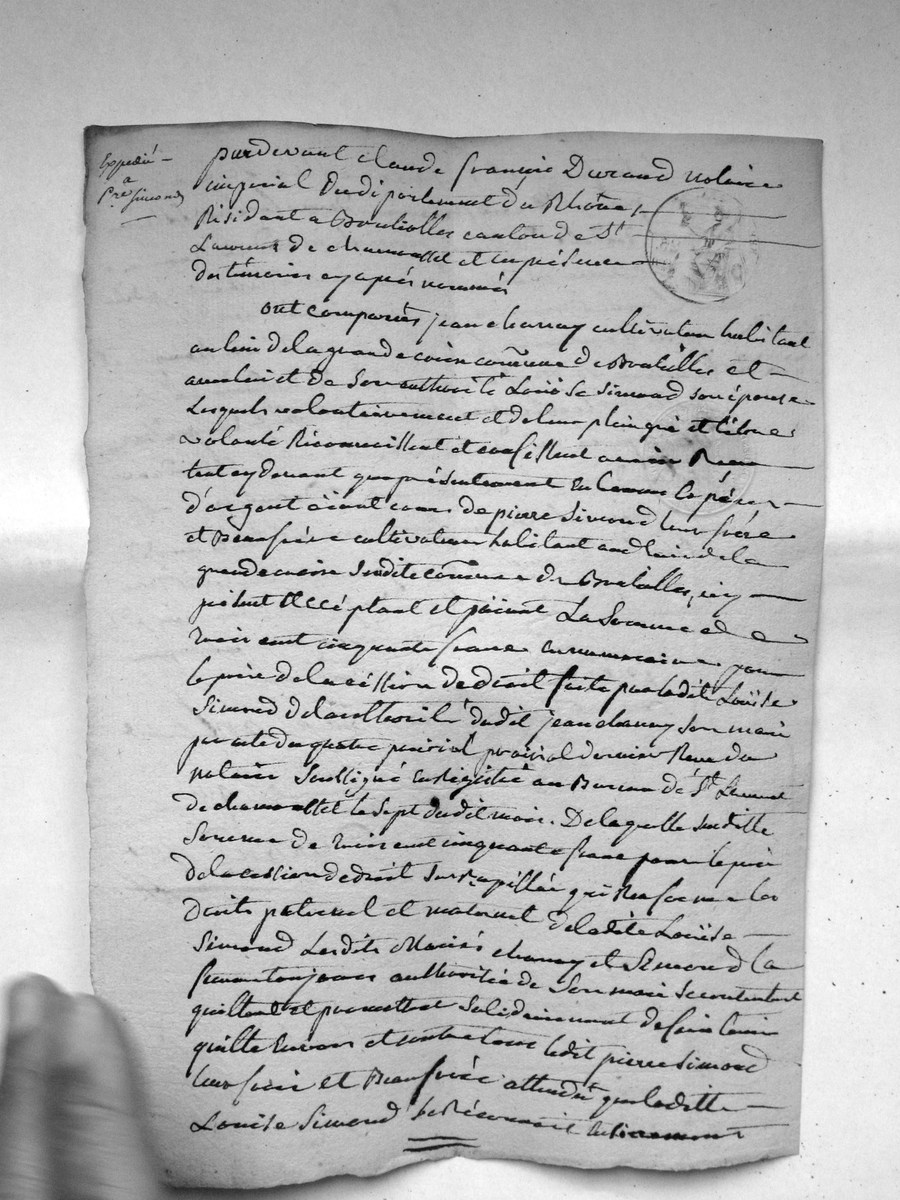 Expedié
a
Pre Simond
pardevant claude françois Durand notaire
imperial du département du Rhône,
Résidant a Brullolles canton de St
Laurent de chamousset et en présence
des témoins cy après nommés
ont comparus jean charvay cultivateur habitant
au lieu de la grande commune de Brulliolles et
avec lui et de son authorité Louise Simond son épouse
Lesquels volontairement et de leur plein gré et libre
volonté Reconnaissent et confessent avoir Reçu
tout cy devant que présentement En bonnes Espèces
d'argent aiant cours de pierre Simond leur frère
et Beaufrère cultivateur habitant aud lieu de la
grande susdite commune de Brullialles, icy
présent acceptant et La Somme de
cent cinquante francs en numeraire pour
le prix de la cession de droit faite par ladite Louise
Simond de l'authorité dudit jean charvay son mari
par acte du quatre prairial prairial dernier Reçu du
notaire Soussigné enregistré au Bureau de St Laurent
de chamousset le sept dudit mois. De laquelle susditte
Somme de cent cinquante francs pour le prix
de la cession de droit Sus rapellée qui Renferme les
Droits paternel et maternel de ladite Louise
Simond Lesdits Mariés charvay et Simond la
femme toujours authorisée de Son mari Se contentent
quittent et promettent solidairement de faire tenir
quitte Envers et contre tous ledit pierre Simond
leur frère et Beaufrère attendu que laditte
Louise Simond Se Reconnait entierement